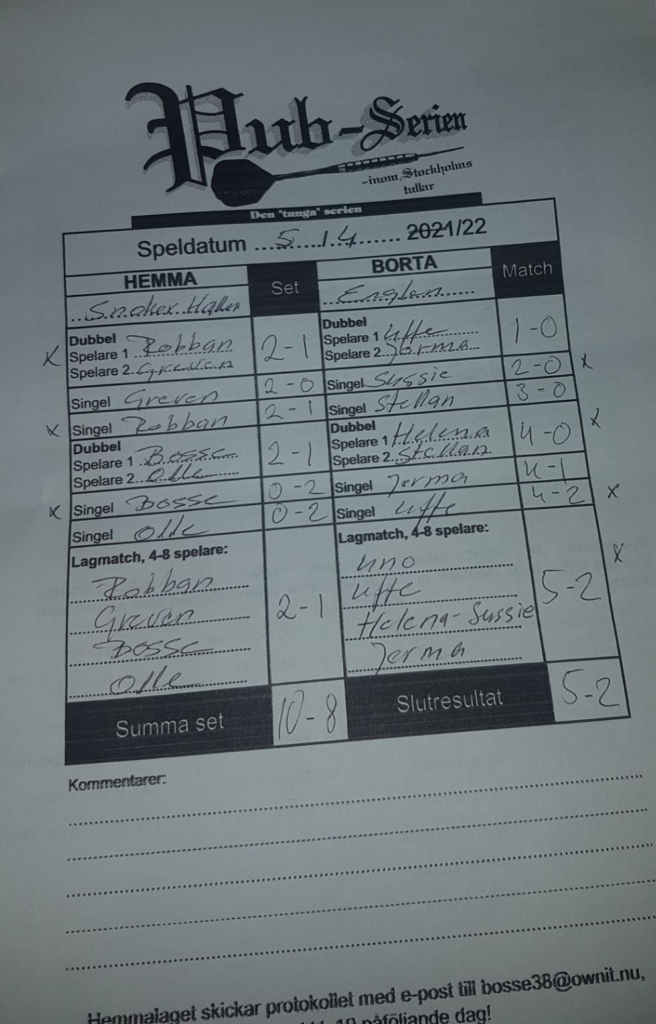 Pub-Serien
-inom Stockholms
tullar
Den "tunga" serien
Speldatum ....5.../.4....... 2021/22
HEMMA Set BORTA Match
Snoker Hallen Englen
Dubbel
Spelare 1 Robban
Spelare 2 Greven
2-1
Dubbel
Spelare 1 Uffe
Spelare 2 Jorma
1-0
X
Singel Greven 2-0 Singel Sussie 2-0 X
X Singel Robban 2-1 Singel Stellan 3-0
Dubbel
Spelare 1 Bosse
Spelare 2 Olle
2-1
Dubbel
Spelare 1 Helena
Spelare 2 Stellan
4-0 X
X Singel Bosse 0-2 Singel Jorma 4-1
Singel Olle 0-2 Singel Uffe 4-2 X
Lagmatch, 4-8 spelare:
Robban
Greven
Bosse
Olle
2-1
Lagmatch, 4-8 spelare:
Uno
Uffe
Helena-Sussie
Jorma
5-2 X
Summa set 10-8 Slutresultat 5-2
Kommentarer:
Hemmalaget skickar protokollet med e-post till bosse38@ownit.nu,
påföljande dag!